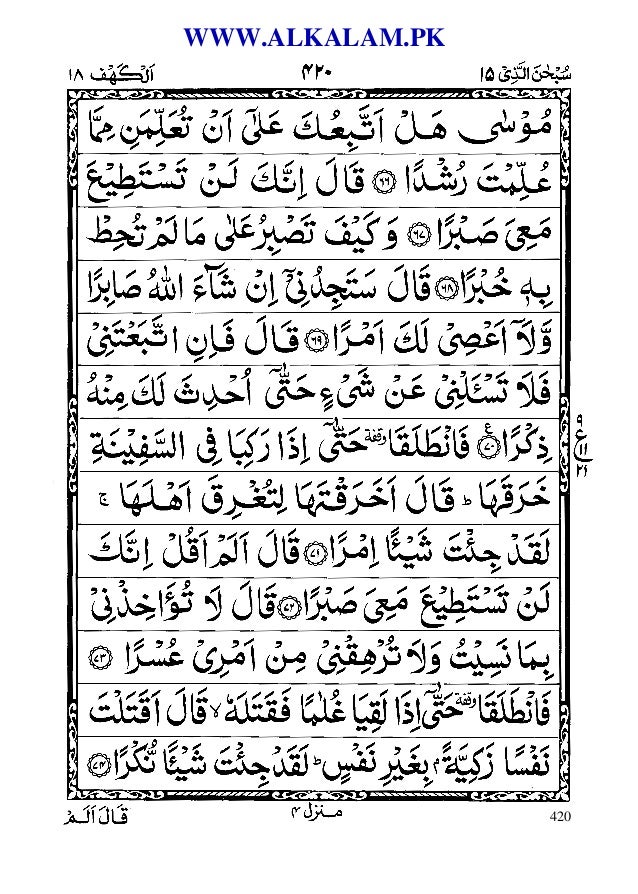 WWW.ALKALAM.PK
سُبْحٰنَ الَّذِیْۤ ۱۵
۴۲۰
اَلْكَهْف ۱۸
مُوْسٰى هَلْ اَتَّبِعُكَ عَلٰۤى اَنْ تُعَلِّمَنِ مِمَّا
عُلِّمْتَ رُشْدًا ﴿۶۶﴾ قَالَ اِنَّكَ لَنْ تَسْتَطِیْعَ
مَعِیَ صَبْرًا ﴿۶۷﴾ وَ كَیْفَ تَصْبِرُ عَلٰى مَا لَمْ تُحِطْ
بِهٖ خُبْرًا ﴿۶۸﴾ قَالَ سَتَجِدُنِیْۤ اِنْ شَآءَ اللّٰهُ صَابِرًا
وَّ لَاۤ اَعْصِیْ لَكَ اَمْرًا ﴿۶۹﴾ قَالَ فَاِنِ اتَّبَعْتَنِیْ
فَلَا تَسْـَٔلْنِیْ عَنْ شَیْءٍ حَتّٰۤى اُحْدِثَ لَكَ مِنْهُ
ذِكْرًا ﴿۷۰﴾ؑ فَانْطَلَقَا ٝ وقفة حَتّٰۤى اِذَا رَكِبَا فِی السَّفِیْنَةِ
۹
ع
۱۱
۲۱
خَرَقَهَا ؕ قَالَ اَخَرَقْتَهَا لِتُغْرِقَ اَهْلَهَا ۚ
لَقَدْ جِئْتَ شَیْـًٔا اِمْرًا ﴿۷۱﴾ قَالَ اَلَمْ اَقُلْ اِنَّكَ
لَنْ تَسْتَطِیْعَ مَعِیَ صَبْرًا ﴿۷۲﴾ قَالَ لَا تُؤَاخِذْنِیْ
بِمَا نَسِیْتُ وَ لَا تُرْهِقْنِیْ مِنْ اَمْرِیْ عُسْرًا ﴿۷۳﴾
فَانْطَلَقَا وقفة حَتّٰۤى اِذَا لَقِیَا غُلٰمًا فَقَتَلَهٗ ۙ قَالَ اَقَتَلْتَ
نَفْسًا زَكِیَّةًۢ بِغَیْرِ نَفْسٍ ؕ لَقَدْ جِئْتَ شَیْـًٔا نُّكْرًا ﴿۷۴﴾
قَالَ اَلَمْ
منزل ۴
420